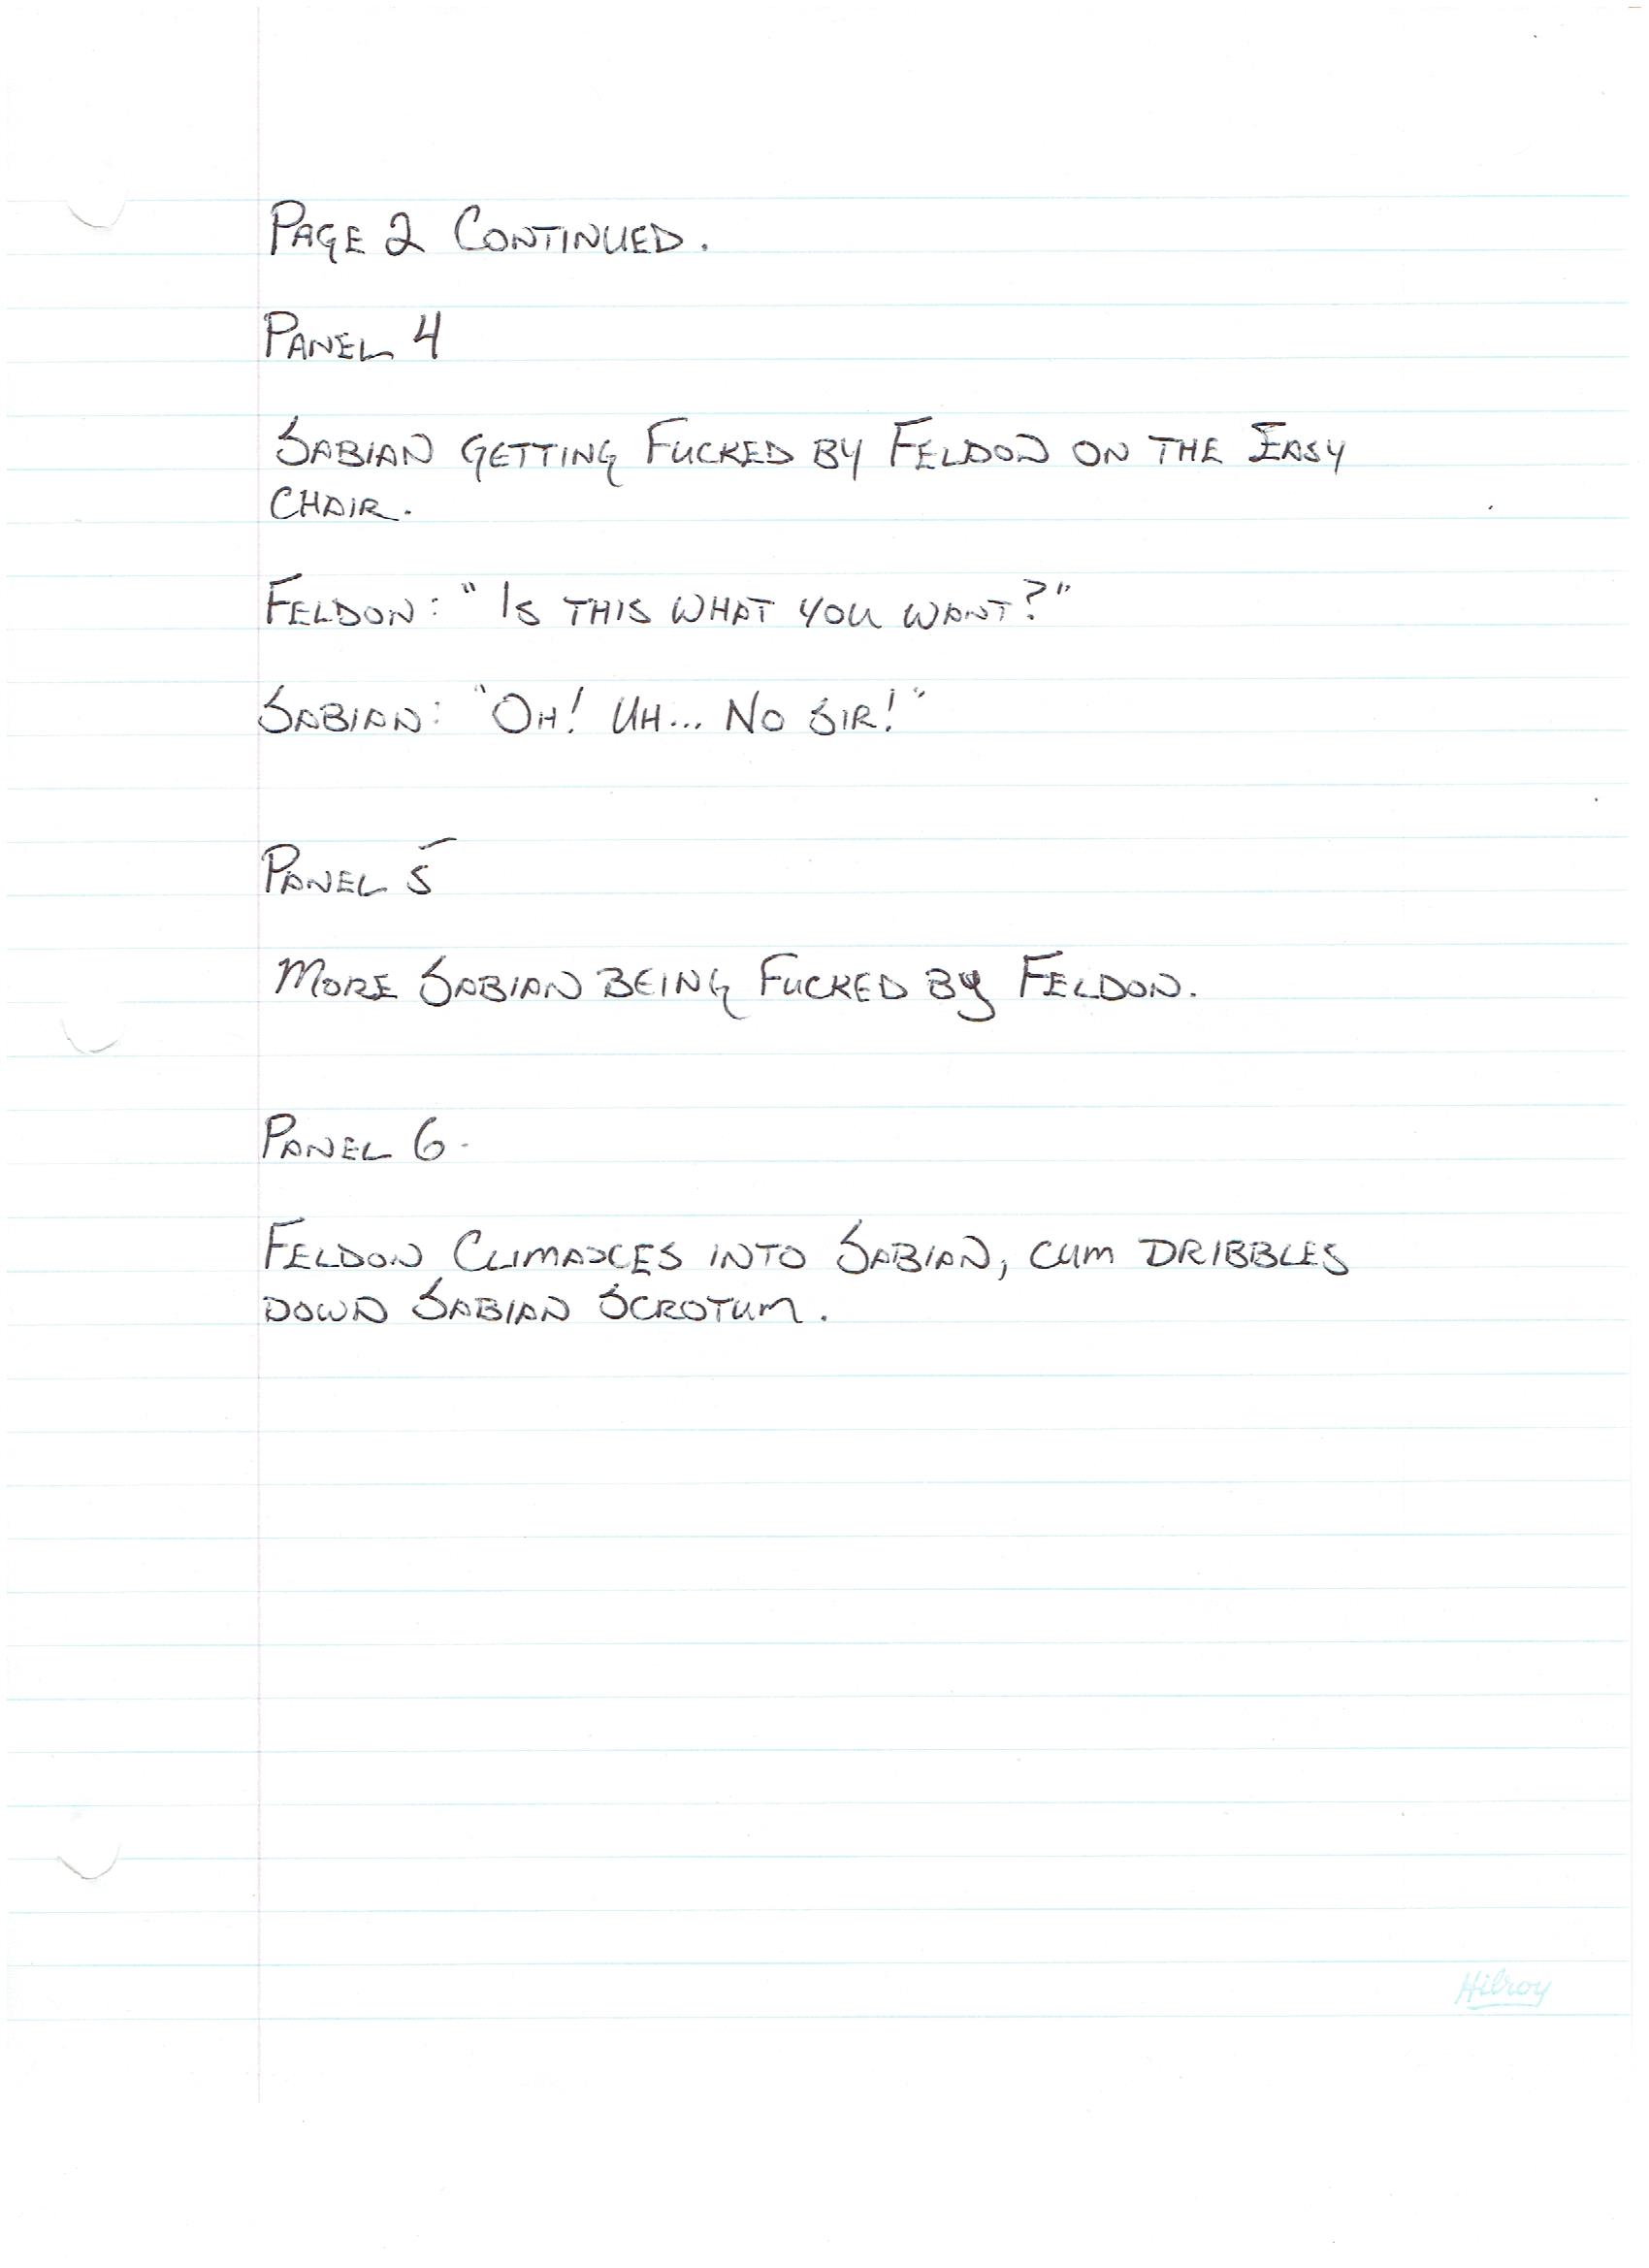 PAGE 2 CONTINUED.
PANEL 4
SABIAN GETTING FUCKED BY FELDON ON THE EASY
CHAIR.
FELDON: "IS THIS WHAT YOU WANT?"
SABIAN: "OH! UH... NO SIR!"
PANEL 5
MORE SABIAN BEING FUCKED BY FELDON.
PANEL 6.
FELDON CLIMAXES INTO SABIAN, CUM DRIBBLES
DOWN SABIAN SCROTUM.
Hilroy